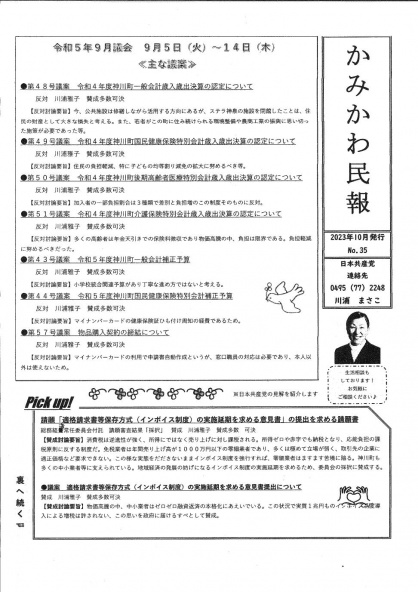 かみかわ民報
2023年10月発行
No.35
日本共産党
連絡先
0495（77）2248
川浦　まさこ
生活相談も
しております！
お気軽に
ご相談ください♪
令和５年９月議会　９月５日（火）～１４日（木）
≪主な議案≫
●第４８号議案　令和４年度神川町一般会計歳入歳出決算の認定について
反対　川浦雅子　賛成多数可決
【反対討論要旨】今、公共施設は修繕しながら活用する方向にあるが、ステラ神泉の施設を閉館したことは、住
民の財産として大きな損失と考える。また、若者がこの町に住み続けられる環境整備や農商工業の振興に思い切っ
た施策が必要であった等。
●第４９号議案　令和４年度神川町国民健康保険特別会計歳入歳出決算の認定について
反対　川浦雅子　賛成多数可決
【反対討論要旨】住民の負担軽減、特に子どもの均等割り減免の拡大に努めるべき等。
●第５０号議案　令和４年度神川町後期高齢者医療特別会計歳入歳出決算の認定について
反対　川浦雅子　賛成多数可決
【反対討論要旨】加入者の一部負担割合は３種類で差別と負担増のこの制度そのものに反対。
●第５１号議案　令和４年度神川町介護保険特別会計歳入歳出決算の認定について
反対　川浦雅子　賛成多数可決
【反対討論要旨】多くの高齢者は年金天引きでの保険料徴収であり物価高騰の中、負担は限界である。負担軽減
に努めるべきだった。
●第４３号議案　令和５年度神川町一般会計補正予算
反対　川浦雅子　賛成多数可決
【反対討論要旨】小学校統合関連予算があり丁寧な進め方ではないと考える。
●第４４号議案　令和５年度神川町国民健康保険特別会計補正予算
反対　川浦雅子　賛成多数可決
【反対討論要旨】マイナンバーカードの健康保険証ひも付け周知の経費であるため。
●第５７号議案　物品購入契約の締結について
反対　川浦雅子　賛成多数可決
【反対討論要旨】マイナンバーカードの利用で申請書自動作成というが、窓口職員の対応は必要であり、本人以
外は使えないため。
Pick up!
※日本共産党の見解を紹介します
請願「適格請求書等保存方式（インボイス制度）の実施延期を求める意見書」の提出を求める請願書
総務経済常任委員会付託　請願審査結果「採択」　賛成　川浦雅子　賛成多数　可決
【賛成討論要旨】消費税は逆進性が強く、所得にではなく売り上げに対し課税される。所得ゼロや赤字でも納税となり、応能負担の課
税原則に反する制度だ。免税業者は年間売り上げ高が１０００万円以下の零細業者であり、多くは極めて立場が弱く、取引先の企業に
適正価格など要求できない。この様な実態をただきないままインボイス制度を強行すれば、零細業者はますます苦境に陥る。神川町も
多くの中小業者等に支えられている。地域経済の発展の妨げになるインボイス制度の実施延期を求めるため、委員会の採択に賛成する。
●議案　適格請求書等保存方式（インボイス制度）の実施延期を求める意見書提出について
賛成　川浦雅子　賛成多数可決
【賛成討論要旨】物価高騰の中、中小業者はゼロゼロ融資返済の本格化にあえいでいる。この状況で実質１兆円ものインボイス制度導
入による増税は許されない。この思いを政府に届けるべすとして賛成。
裏へ続く